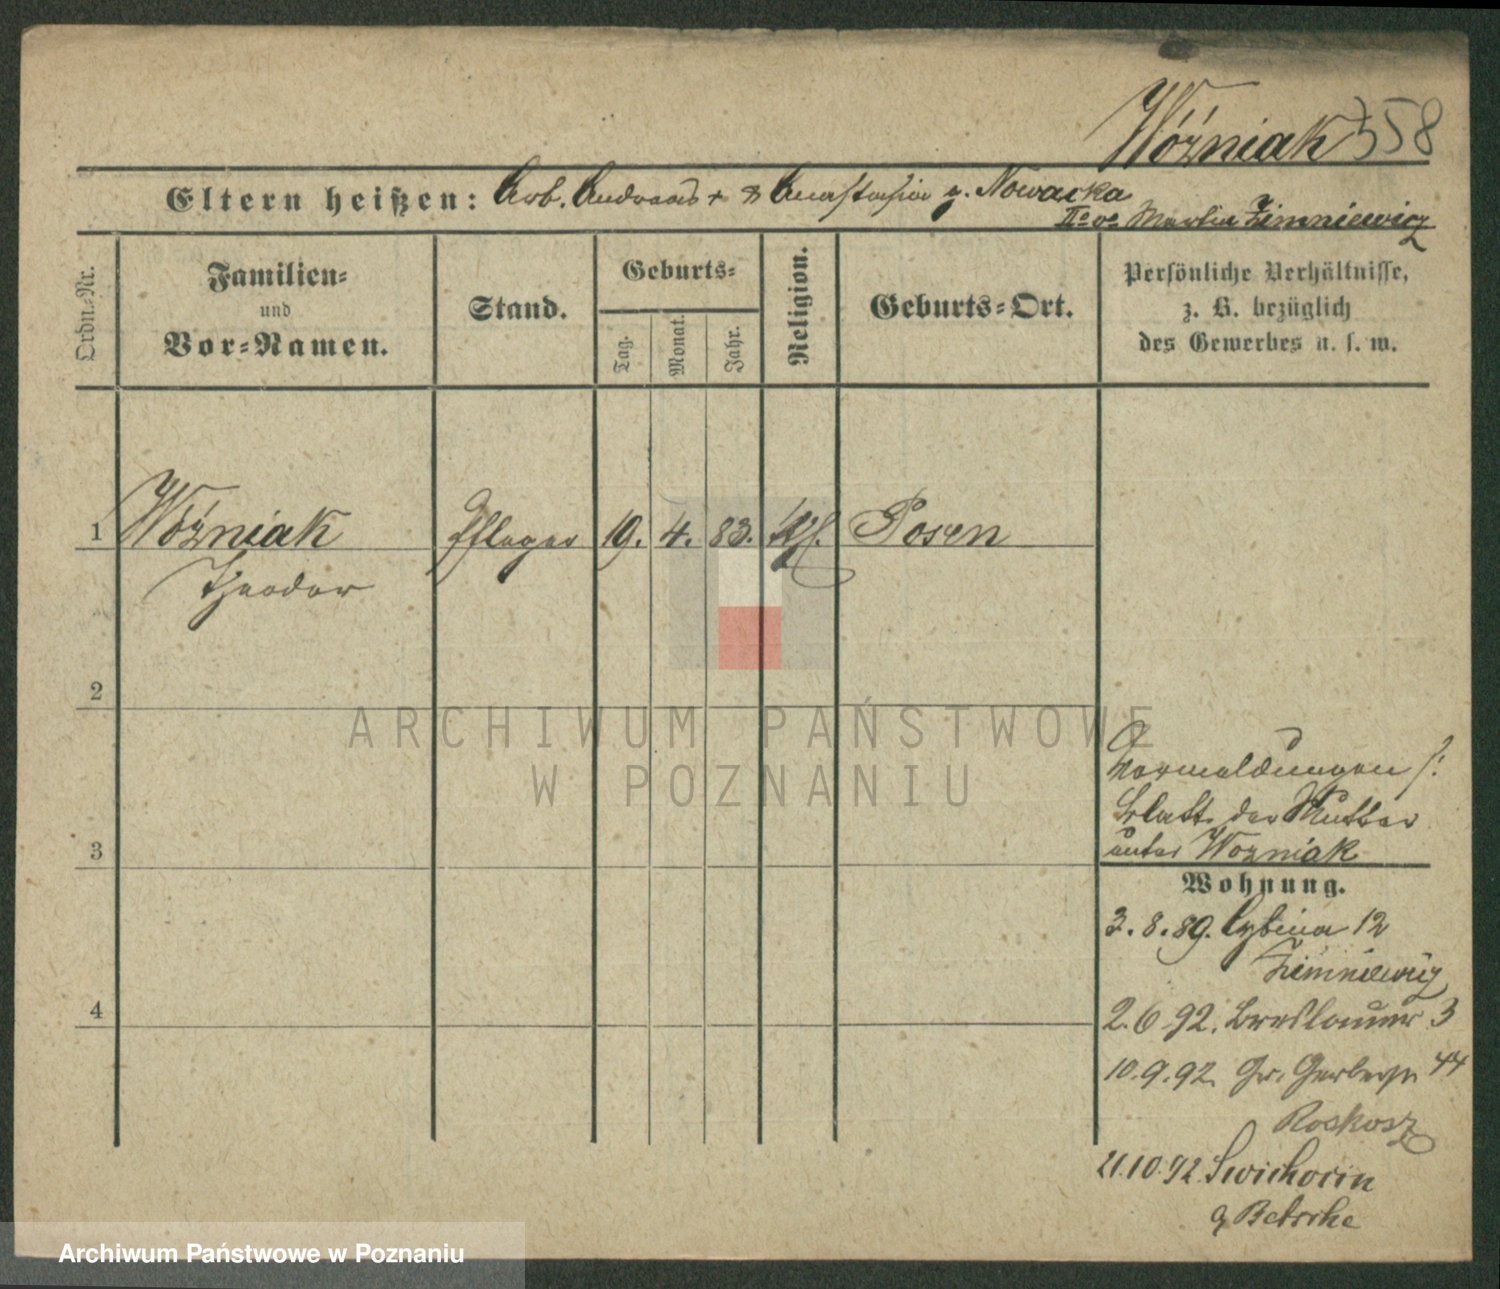 Wóźniak 358
Eltern heißen: Arb. Andreas + & Anastasia g. Nowacka
IIo vo Martin Zimniewicz
Ordn.-Nr.
Familien-
und
Vor-Namen.
Stand.
Geburts-
Tag.
Monat.
Jahr.
Religion.
Geburts-Ort.
Persönliche Verhältnisse,
z. B. bezüglich
des Gewerbes u. s. w.
1 Wóźniak Pfleger 19. 4. 83. Kth. Posen
Theodor
2
ARCHIWUM PAŃSTWOWE
W POZNANIU
Vormeldungen s:
Blatt der Mutter
unter Wozniak
3
Wohnung.
3.8.89. Cybina 12
Zimniewicz
4
2.6.92. Breslauer 3
10.9.92. Gr. Gerberstr 44
Roskosz
21.10.92 Swichocin
g Betsche
Archiwum Państwowe w Poznaniu